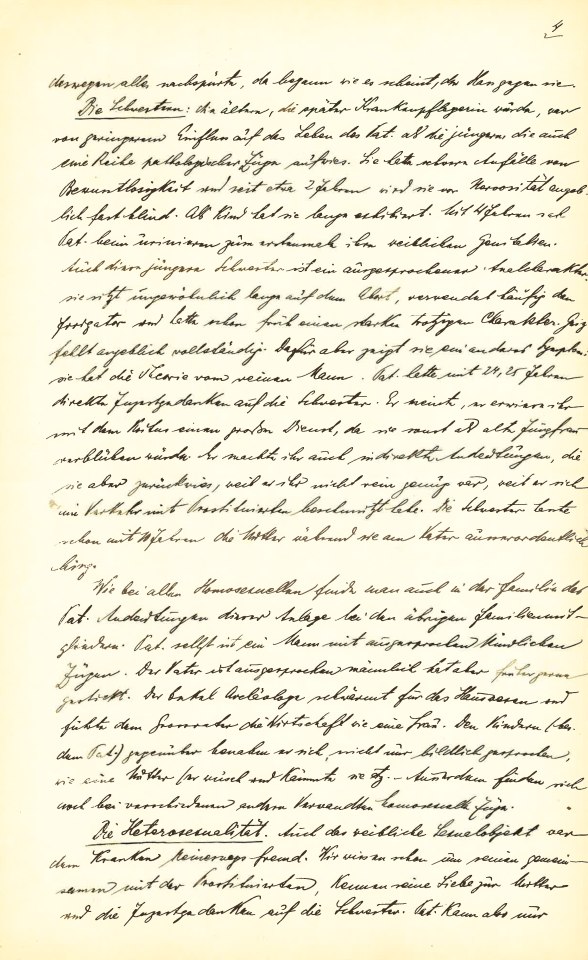 4
deswegen alles nachspürte, da begann wie es scheint, der Hass gegen sie.
Die Schwestern: die ältere, die später Krankenpflegerin wurde, war
von geringerem Einfluss auf das Leben des Pat. als die jüngere die auch
eine Reihe pathologischer Züge aufwies. Sie hatte schwere Anfälle von
Bewusstlosigkeit und seit etwa 2 Jahren wird sie vor Nervosität angeb-
lich fast blind. Als Kind hat sie lange exhibiert. Mit 4 Jahren sah
Pat. beim urinieren zum erstenmale ihre weiblichen Genitalien.
Auch diese jüngere Schwester ist ein ausgesprochener Analcharakter:
sie sitzt ungewöhnlich lange auf dem Abort, verwendet häufig den
Irrigator und hatte schon früh einen starken trotzigen Charakter. Geiz
fehlt angeblich vollständig. Dafür aber zeigt sie ein anderes Symptom:
sie hat die Theorie vom reinen Mann. Pat. hatte mit 24, 25 Jahren
direkte Inzestgedanken auf die Schwester. Er meinte, er erwiese ihr
mit dem Koitus einen grossen Dienst, da sie sonst als alte Jungfrau
verblühen würde. Er machte ihr auch indirekte Andeutungen, die
sie aber zurückwies, weil er ihr nicht rein genug war, weil er sich
im Verkehr mit Prostituierten beschmutzt habe. Die Schwester
schon mit Jahren die Mutter während sie am Vater ausserordentlich
hing.
Wie bei allen Homosexuellen findet man auch in der Familie des
Pat. Andeutungen dieser Anlage bei den übrigen Familienmit-
gliedern. Pat. selbst ist ein Mann mit ausgesprochen kindlichen
Zügen. Der Vater ist ausgesprochen männlich hat aber früher gerne
gestickt. Der Onkel Archäologe schwärmt für das Hauswesen und
führte dem Grossvater die Wirtschaft wie eine Frau. Den Kindern (bes.
dem Pat.) gegenüber benahm er sich, nicht nur bildlich gesprochen,
wie eine Mutter (er wusch und kämmte sie etz. – Ausserdem finden sich
auch bei verschiedenen andern Verwandten homosexuelle Züge.
Die Heterosexualität. Auch das weibliche Sexualobjekt war
dem Kranken keineswegs fremd. Wir wissen schon um seinen gemein-
samen mit der Prostituierten, kennen seine Liebe zur Mutter
und die Inzestgedanken auf die Schwester. Pat. kann also nur